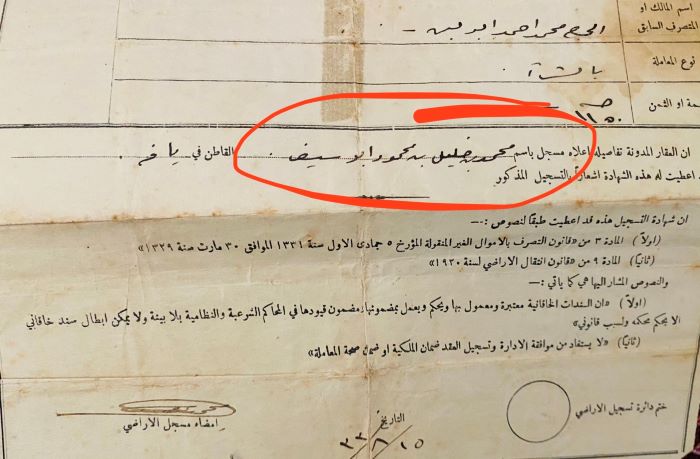 اسم المالك او
المتصرف السابق
الحاج محمد احمد ابو لبن
نوع المعاملة
بالشراء
او الثمن
١١٥٠
ان العقار المدونة تفاصيله اعلاه مسجل باسم محمود خليل بن محمود ابو سيف القاطن في يافه
اعطيت له هذه الشهادة اشعاراً بالتسجيل المذكور
ان شهادة التسجيل هذه قد اعطيت طبقاً لنصوص :—
(اولاً) المادة ٣ من «قانون التصرف بالاموال الغير المنقولة المؤرخ ٥ جمادى الاول سنة ١٣٣١ الموافق ٣٠ مارت سنة ١٣٢٩»
(ثانياً) المادة ٩ من «قانون انتقال الاراضي لسنة ١٩٢٠»
والنصوص المشار اليها هي كما ياتي :—
(اولاً) «ان السندات الخاقانية معتبرة ومعمول بها ويحكم ويعمل بمضمونها ومضمون قيودها في المحاكم الشرعية والنظامية بلا بينة ولا يمكن ابطال سند خاقاني
الا بحكم محكمه ولسبب قانوني»
(ثانياً) «لا يستفاد من موافقة الادارة وتسجيل العقد ضمان الملكية او ضمان صحة المعاملة»
ختم دائرة تسجيل الاراضي
التاريخ
١٥/٨/٣٣
امضاء مسجل الاراضي